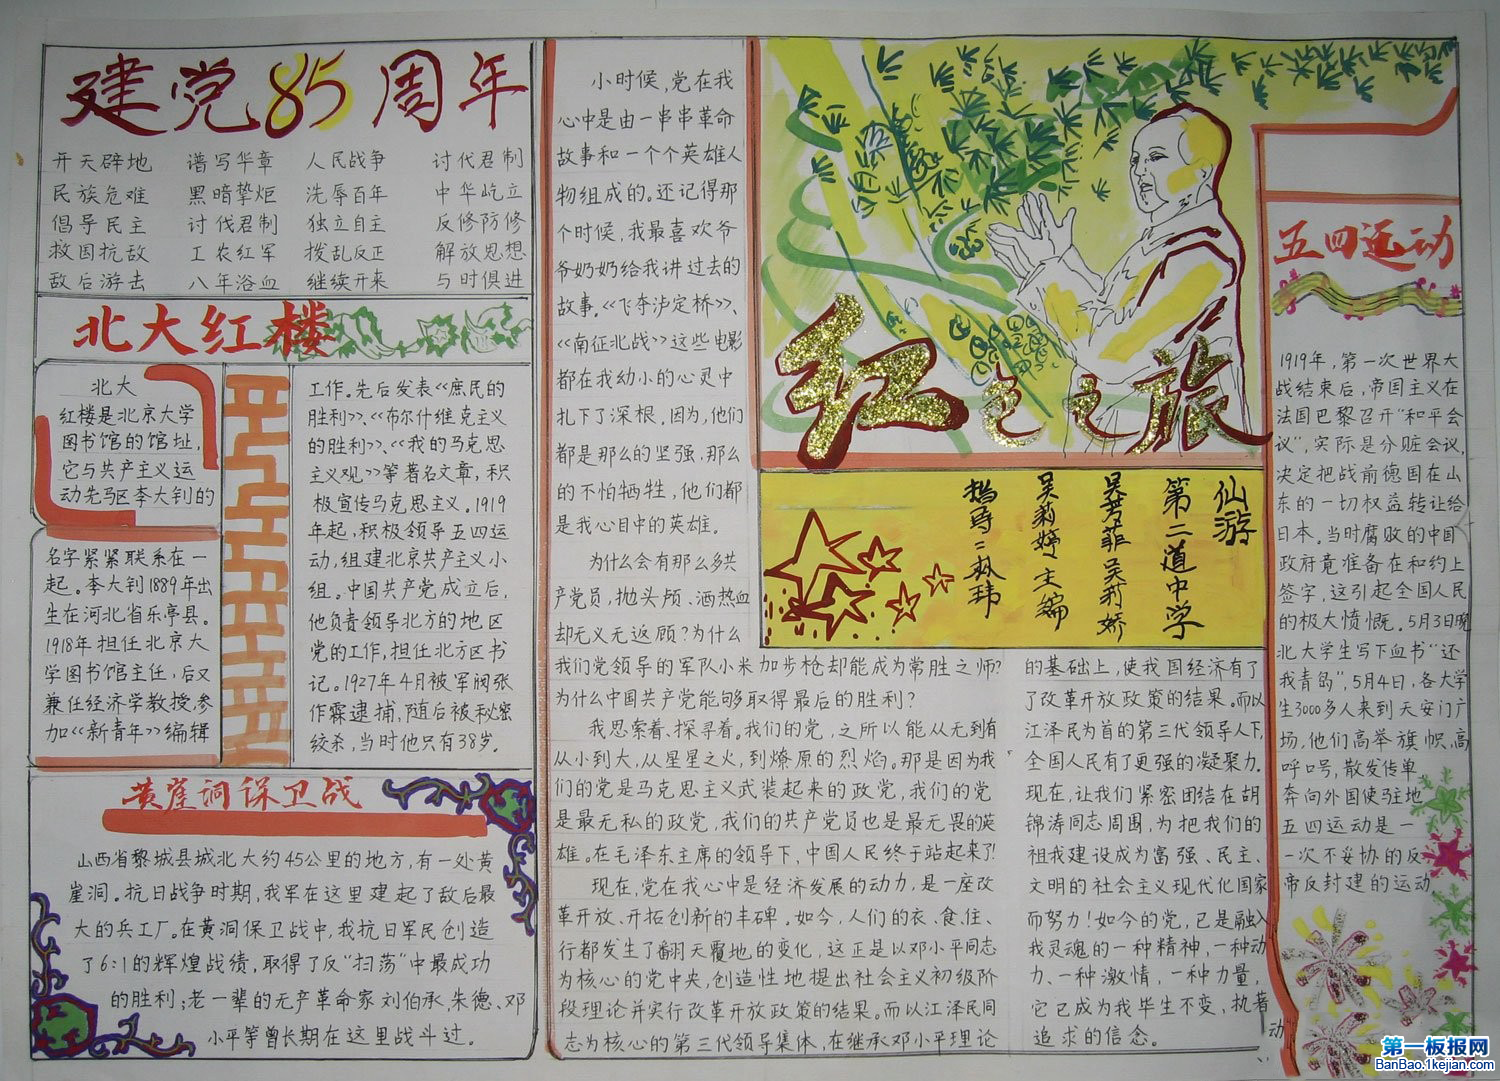 建党85周年
开天辟地 谱写华章 人民战争 讨代君制
民族危难 黑暗挚炬 洗辱百年 中华屹立
倡导民主 讨伐君制 独立自主 反修防修
救国抗敌 工农红军 拨乱反正 解放思想
敌后游击 八年浴血 继续开来 与时俱进
北大红楼
北大
红楼是北京大学
图书馆的馆址,
它与共产主义运
动先驱李大钊的
名字紧紧联系在一
起。李大钊1889年出
生在河北省乐亭县。
1918年担任北京大
学图书馆主任,后又
兼任经济学教授,参
加《新青年》编辑
工作。先后发表《庶民的
胜利》、《布尔什维克主义
的胜利》、《我的马克思
主义观》等著名文章,积
极宣传马克思主义。1919
年起,积极领导五四运
动,组建北京共产主义小
组。中国共产党成立后,
他负责领导北方的地区
党的工作,担任北方区书
记。1927年4月被军阀张
作霖逮捕,随后被秘密
绞杀,当时他只有38岁。
黄崖洞保卫战
山西省黎城县城北大约45公里的地方,有一处黄
崖洞。抗日战争时期,我军在这里建起了敌后最
大的兵工厂。在黄洞保卫战中,我抗日军民创造
了6:1的辉煌战绩,取得了反"扫荡"中最成功
的胜利;老一辈的无产革命家刘伯承、朱德、邓
小平等曾长期在这里战斗过。
小时候,党在我
心中是由一串串革命
故事和一个个英雄人
物组成的。还记得那
个时候,我最喜欢爷
爷奶奶给我讲过去的
故事。《飞夺泸定桥》、
《南征北战》这些电影
都在我幼小的心灵中
扎下了深根。因为,他们
都是那么的坚强,那么
的不怕牺牲,他们都
是我心目中的英雄。
为什么会有那么多共
产党员,抛头颅、洒热血
却无义无返顾?为什么
我们党领导的军队小米加步枪却能成为常胜之师?
为什么中国共产党能够取得最后的胜利?
我思索着、探寻着。我们的党,之所以能从无到有
从小到大,从星星之火,到燎原的烈焰。那是因为我
们的党是马克思主义武装起来的政党,我们的党
是最无私的政党,我们的共产党员也是最无畏的英
雄。在毛泽东主席的领导下,中国人民终于站起来了!
现在,党在我心中是经济发展的动力,是一座改
革开放、开拓创新的丰碑。如今,人们的衣、食、住、
行都发生了翻天覆地的变化,这正是以邓小平同志
为核心的党中央,创造性地提出社会主义初级阶
段理论并实行改革开放政策的结果。而以江泽民同
志为核心的第三代领导集体,在继承邓小平理论
的基础上,使我国经济有了
了改革开放政策的结果。而以
江泽民为首的第三代领导人下,
全国人民有了更强的凝聚力。
现在,让我们紧密团结在胡
锦涛同志周围,为把我们的
祖我建设成为富强、民主、
文明的社会主义现代化国家
而努力!如今的党,已是融入
我灵魂的一种精神,一种动
力、一种激情,一种力量,
它已成为我毕生不变,执着
追求的信念。
动
红色之旅
仙游
第二道中学
吴芳菲 吴莉娇
吴莉婷 主编
五四运动
1919年,第一次世界大
战结束后,帝国主义在
法国巴黎召开"和平会
议",实际是分赃会议,
决定把战前德国在山
东的一切权益转让给
日本。当时腐败的中国
政府竟准备在和约上
签字,这引起全国人民
的极大愤慨。5月3日晚
北大学生写下血书"还
我青岛",5月4日,各大学
生3000多人来到天安门广
场,他们高举旗帜,高
呼口号,散发传单
奔向外国使马主地
五四运动是一
一次不妥协的反
帝反封建的运动
第一板报网
BanBao.1kejian.com